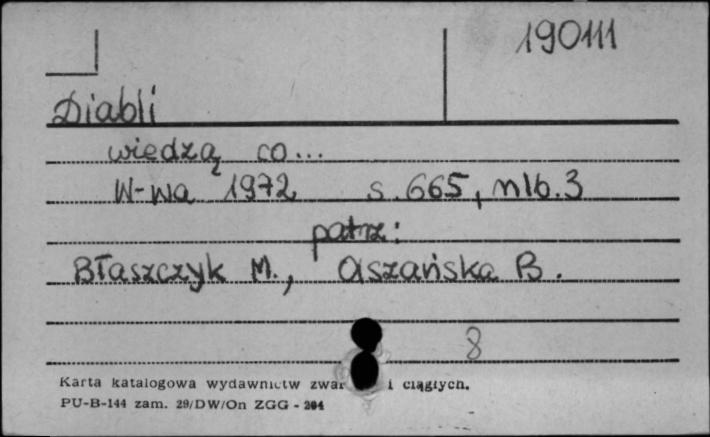 190111
Diabli
wiedzą co...
W-wa 1972 s. 665, nlb. 3
patrz:
Błaszczyk M., Oszańska B.
8
Karta katalogowa wydawnictw zwar i ciągłych.
PU-B-144 zam. 29/DW/On ZGG - 204